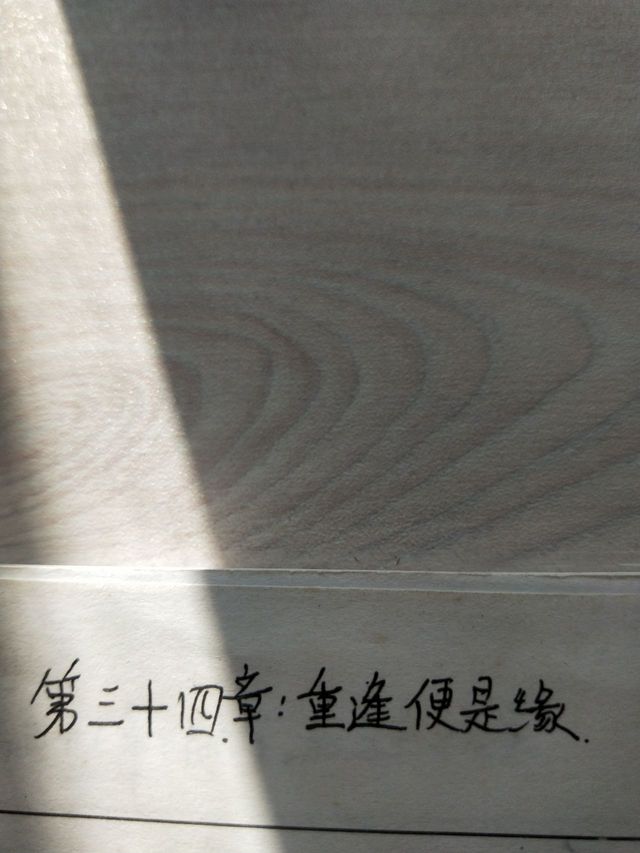 第三十四章:重逢便是缘.